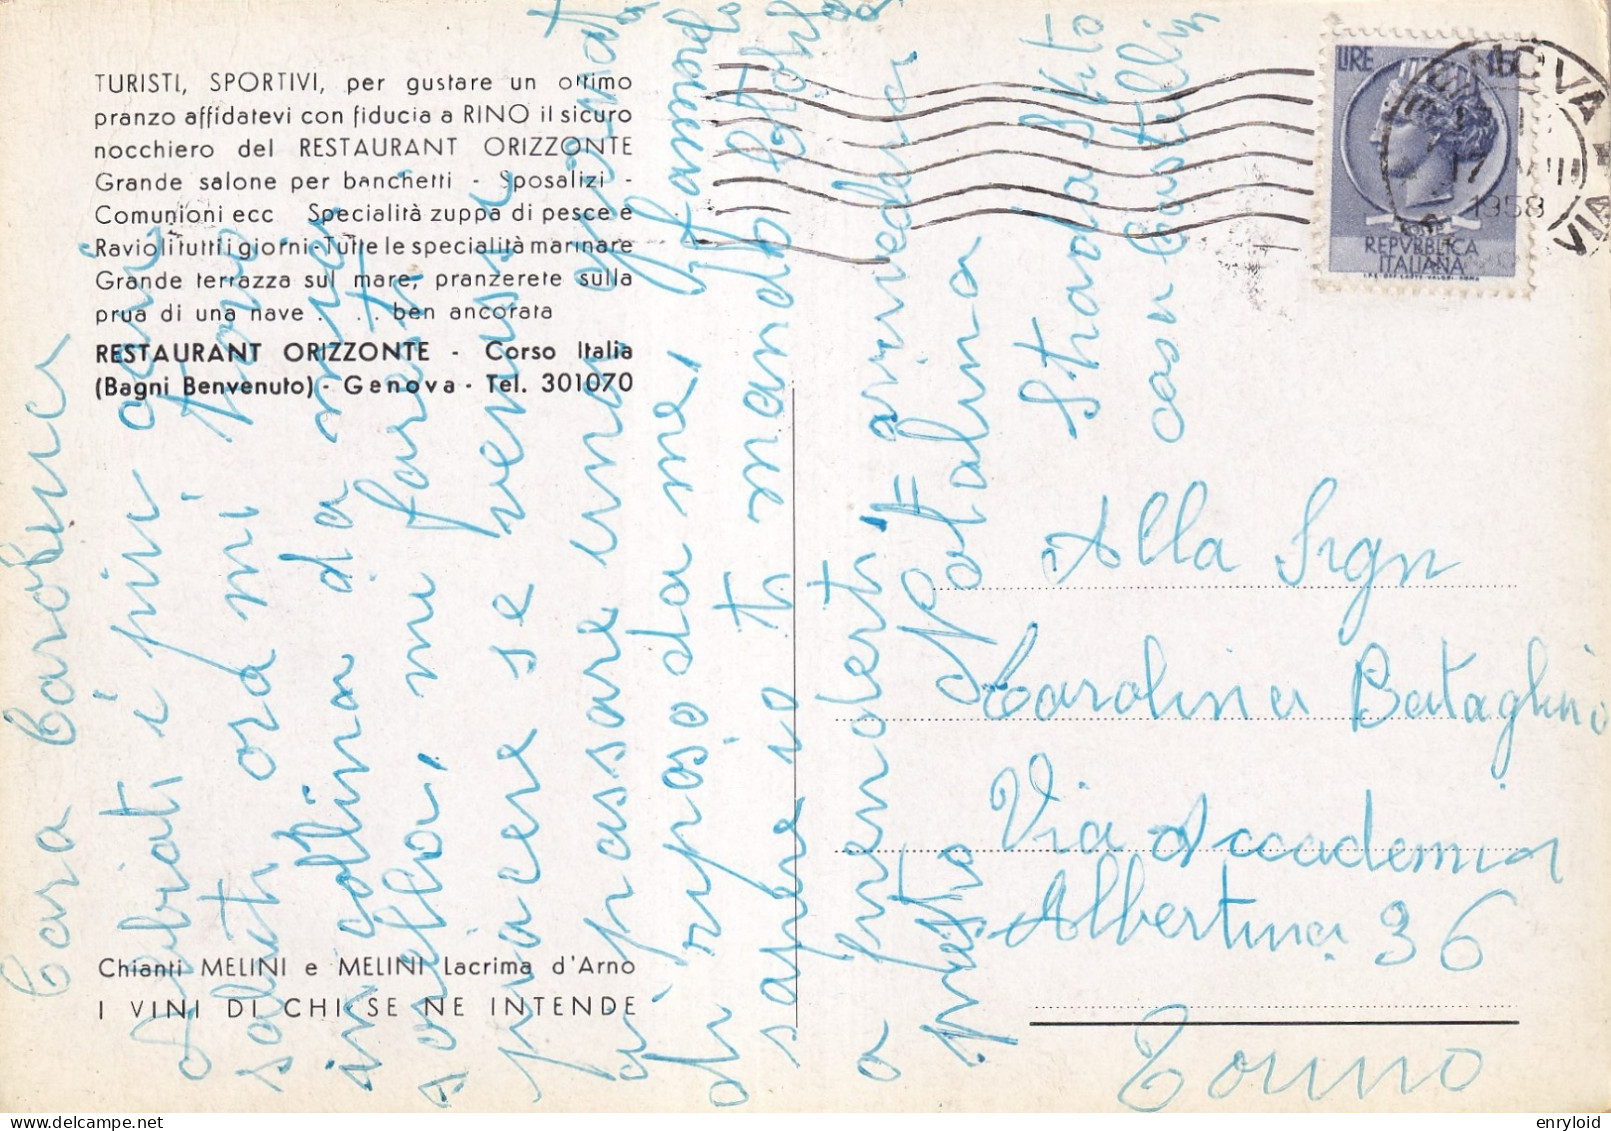 TURISTI, SPORTIVI, per gustare un ottimo
pranzo affidatevi con fiducia a RINO il sicuro
nocchiero del RESTAURANT ORIZZONTE
Grande salone per banchetti - Sposalizi -
Comunioni ecc Specialità zuppa di pesce e
Ravioli tutti i giorni - Tutte le specialità marinare
Grande terrazza sul mare, pranzerete sulla
prua di una nave . . . ben ancorata
RESTAURANT ORIZZONTE - Corso Italia
(Bagni Benvenuto) - Genova - Tel. 301070
Chianti MELINI e MELINI Lacrima d'Arno
I VINI DI CHI SE NE INTENDE
Cara Carolina
Abbiati i più cari
saluti ora mi trovo
in collina da mia
sorella, mi faresti
piacere se venissi
a passare una giornata
di riposo da me, fammelo
sapere io ti mando
a prenderti = arrivederci
presto Natalina
Strada
casa
LIRE 15
REPVBBLICA
ITALIANA
17 VIII
1958
Alla Sign
Carolina Bataglino
Via Accademia
Albertina 36
Torino
enryloid